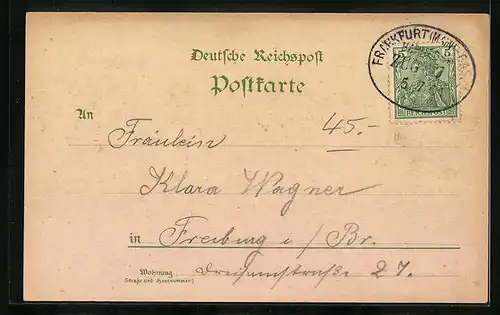 Deutsche Reichspost
FRANKFURT (MAIN)
Postkarte
5
REICHSPOST
An
45.-
Fräulein
Klara Wagner
in Freiburg i/Br.
Wohnung Dreisamstraße 27.
(Straße und Hausnummer)